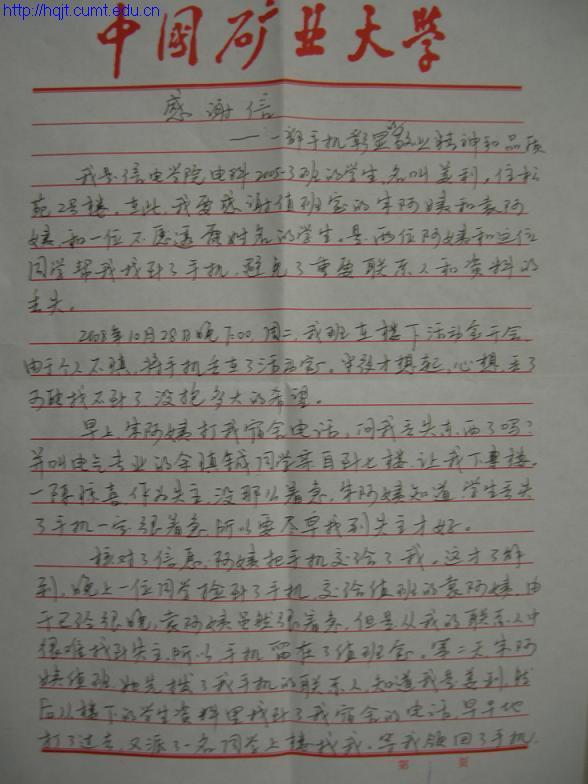 http://hqjt.cumt.edu.cn
中国矿业大学
感谢信
——一部手机彰显敬业精神和品质
我是信电学院电科2005-3班的学生,名叫姜利,住松
苑2号楼。在此,我要感谢值班室的朱阿姨和袁阿
姨和一位不愿透露姓名的学生。是两位阿姨和这位
同学帮我找到了手机,避免了重要联系人和资料的
丢失。
2008年10月28日晚7:00,周二,我班在楼下活动室开会,
由于个人不慎,将手机丢在了活动室。半夜才想起,心想丢了
可能找不到了,没抱多大的希望。
早上,朱阿姨打我宿舍电话,问我丢失东西了吗?
并叫电气专业的同学亲自到七楼,让我下楼。
一阵惊喜,作为失主,没那么着急,朱阿姨知道学生丢失
了手机一定很着急,所以要尽早找到失主才好。
核对了信息,阿姨把手机交给了我。这才了解
到,晚上一位同学捡到了手机,交给值班的袁阿姨,由
于已经很晚,袁阿姨虽然很着急,但是从我的联系人中
很难找到失主,所以手机留在了值班室。第二天朱阿
姨值班,她先拨了我手机的联系人,知道我是姜利,然
后从楼下的学生资料里找到了我宿舍的电话,早早地
打了过去,又派了一名同学上楼找我。等我领回了手机,
第 页